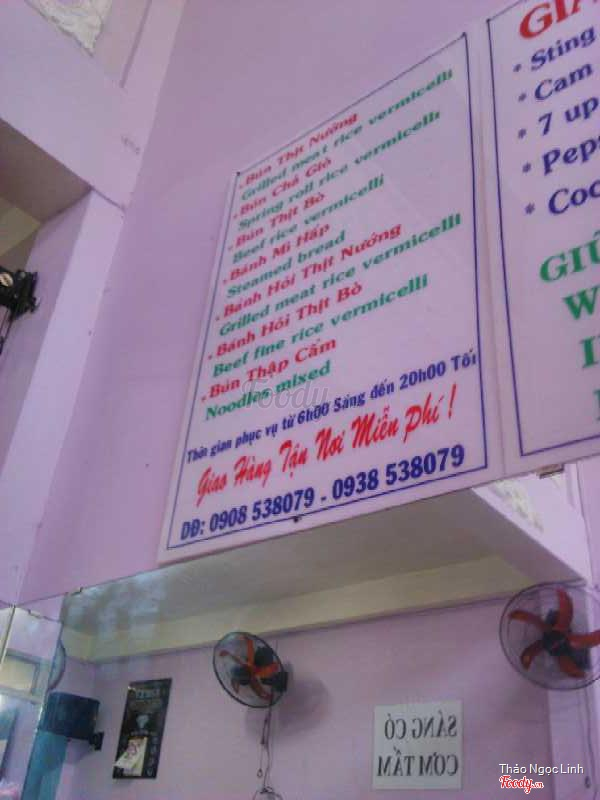 • Bún Thịt Nướng
Grilled meat rice vermicelli
• Bún Chả Giò
Spring roll rice vermicelli
• Bún Thịt Bò
Beef rice vermicelli
• Bánh Mì Hấp
Steamed bread
• Bánh Hỏi Thịt Nướng
Grilled meat rice vermicelli
• Bánh Hỏi Thịt Bò
Beef fine rice vermicelli
• Bún Thập Cẩm
Noodles mixed
Thời gian phục vụ từ 6h00 Sáng đến 20h00 Tối
Giao Hàng Tận Nơi Miễn Phí !
DĐ: 0908 538079 - 0938 538079
* Sting
* Cam
* 7 up
SÁNG CÓ
CƠM TẤM
Foody.vn
Thảo Ngọc Linh
Foody.vn